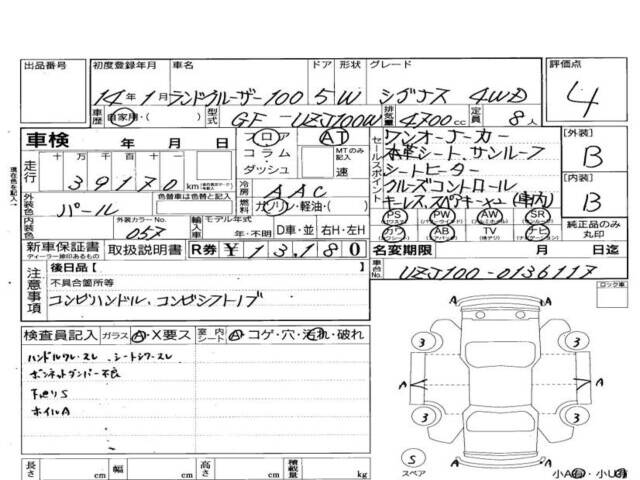 出品番号 初度登録年月 車名 ドア 形状 グレード 評価点
14年1月 ランドクルーザー100 5 W シグナス 4WD 4
車歴 自家用・( ) 型式 GF-UZJ100W 排気量 4700cc 定員 8人
車検 年 月 日
フロア AT
コラム MTのみ記入
ダッシュ 速
セールスポイント
ワンオーナーカー
本革シート、サンルーフ
シートヒーター
クルーズコントロール
キーレス、スペアキー×1(車内)
[外装] B
[内装] B
走行 十 万 千 百 十
39170 km
冷房 AAC
燃料 ガソリン・軽油・( )
外装色 パール 色替車は色替と記入
内装色 外装カラーNo. 057
輸入車 モデル年式 年・不明 D車・並 右H・左H
PS PW AW SR
カワ AB TV ナビ
純正品のみ丸印
新車保証書 取扱説明書 R券 ¥13,180
ディーラー捺印あるもの
名変期限 月 日迄
車台No. UZJ100-0136117
注意事項
後日品 [ ]
不具合箇所等
コンビハンドル、コンビシフトノブ
ロック車
検査員記入 ガラス A・X要ス 室内シート A・コゲ・穴・汚れ・破れ
ハンドルワレ・スレ、シートシワ・スレ
ボンネットダンパー不良
下廻りS
ホイルA
3 3
A A A A
3 3
S
スペア
長さ cm 幅 cm 高さ cm 積載量 kg
小A有・小U有